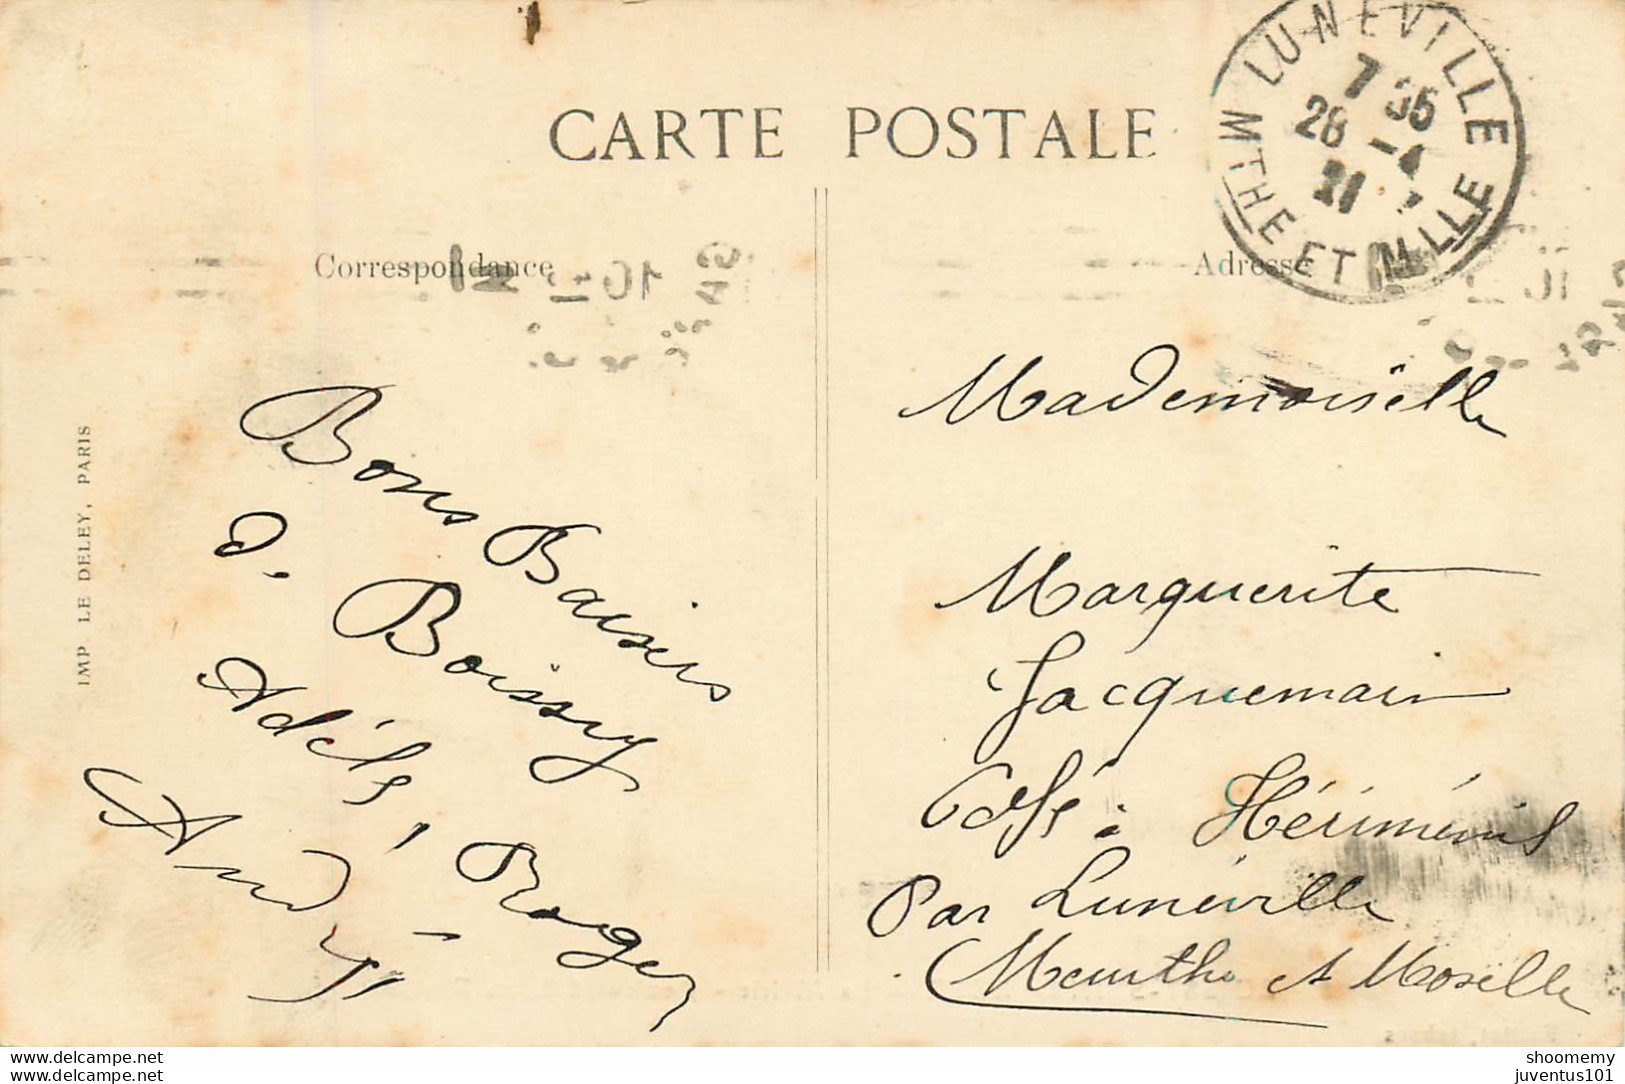 CARTE POSTALE
LUNEVILLE
7 35
28 -4
21
MTHE ET MLLE
Correspondance
Adresse
IMP LE DELEY, PARIS
Bons Baisers
d. Boissy
Adèle, Roger
André
Mademoiselle
Marguerite
Jacquemain
Café: Hériménil
Par Lunéville
Meurthe et Moselle
www.delcampe.net
www.delcampe.net
shoomemy
juventus101